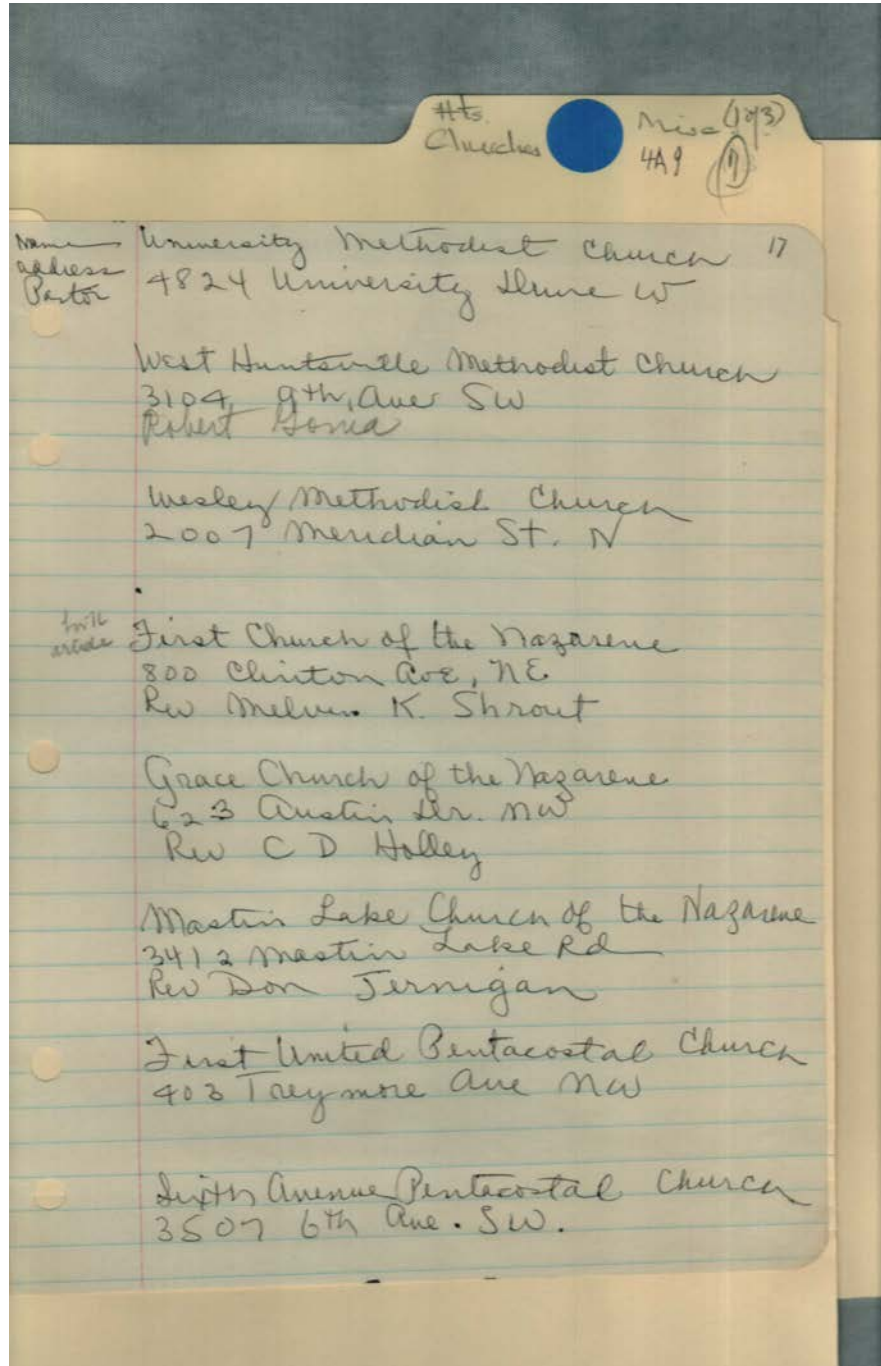 Hts.
Churches
Misc (1 of 3)
4A9
7
17
Name
address
Pastor
University Methodist Church
4824 University Drive W
West Huntsville Methodist Church
3104, 9th, Ave SW
Robert
Wesley Methodist Church
2007 Meridian St. N
First Church of the Nazarene
800 Clinton Ave, NE
Rev Melvin K. Shrout
Grace Church of the Nazarene
623 Austin Dr. NW
Rev C D Holley
Mastin Lake Church of the Nazarene
3412 Mastin Lake Rd
Rev Don Jernigan
First United Pentacostal Church
403 Treymore Ave NW
Sixth Avenue Pentecostal Church
3507 6th Ave. SW.